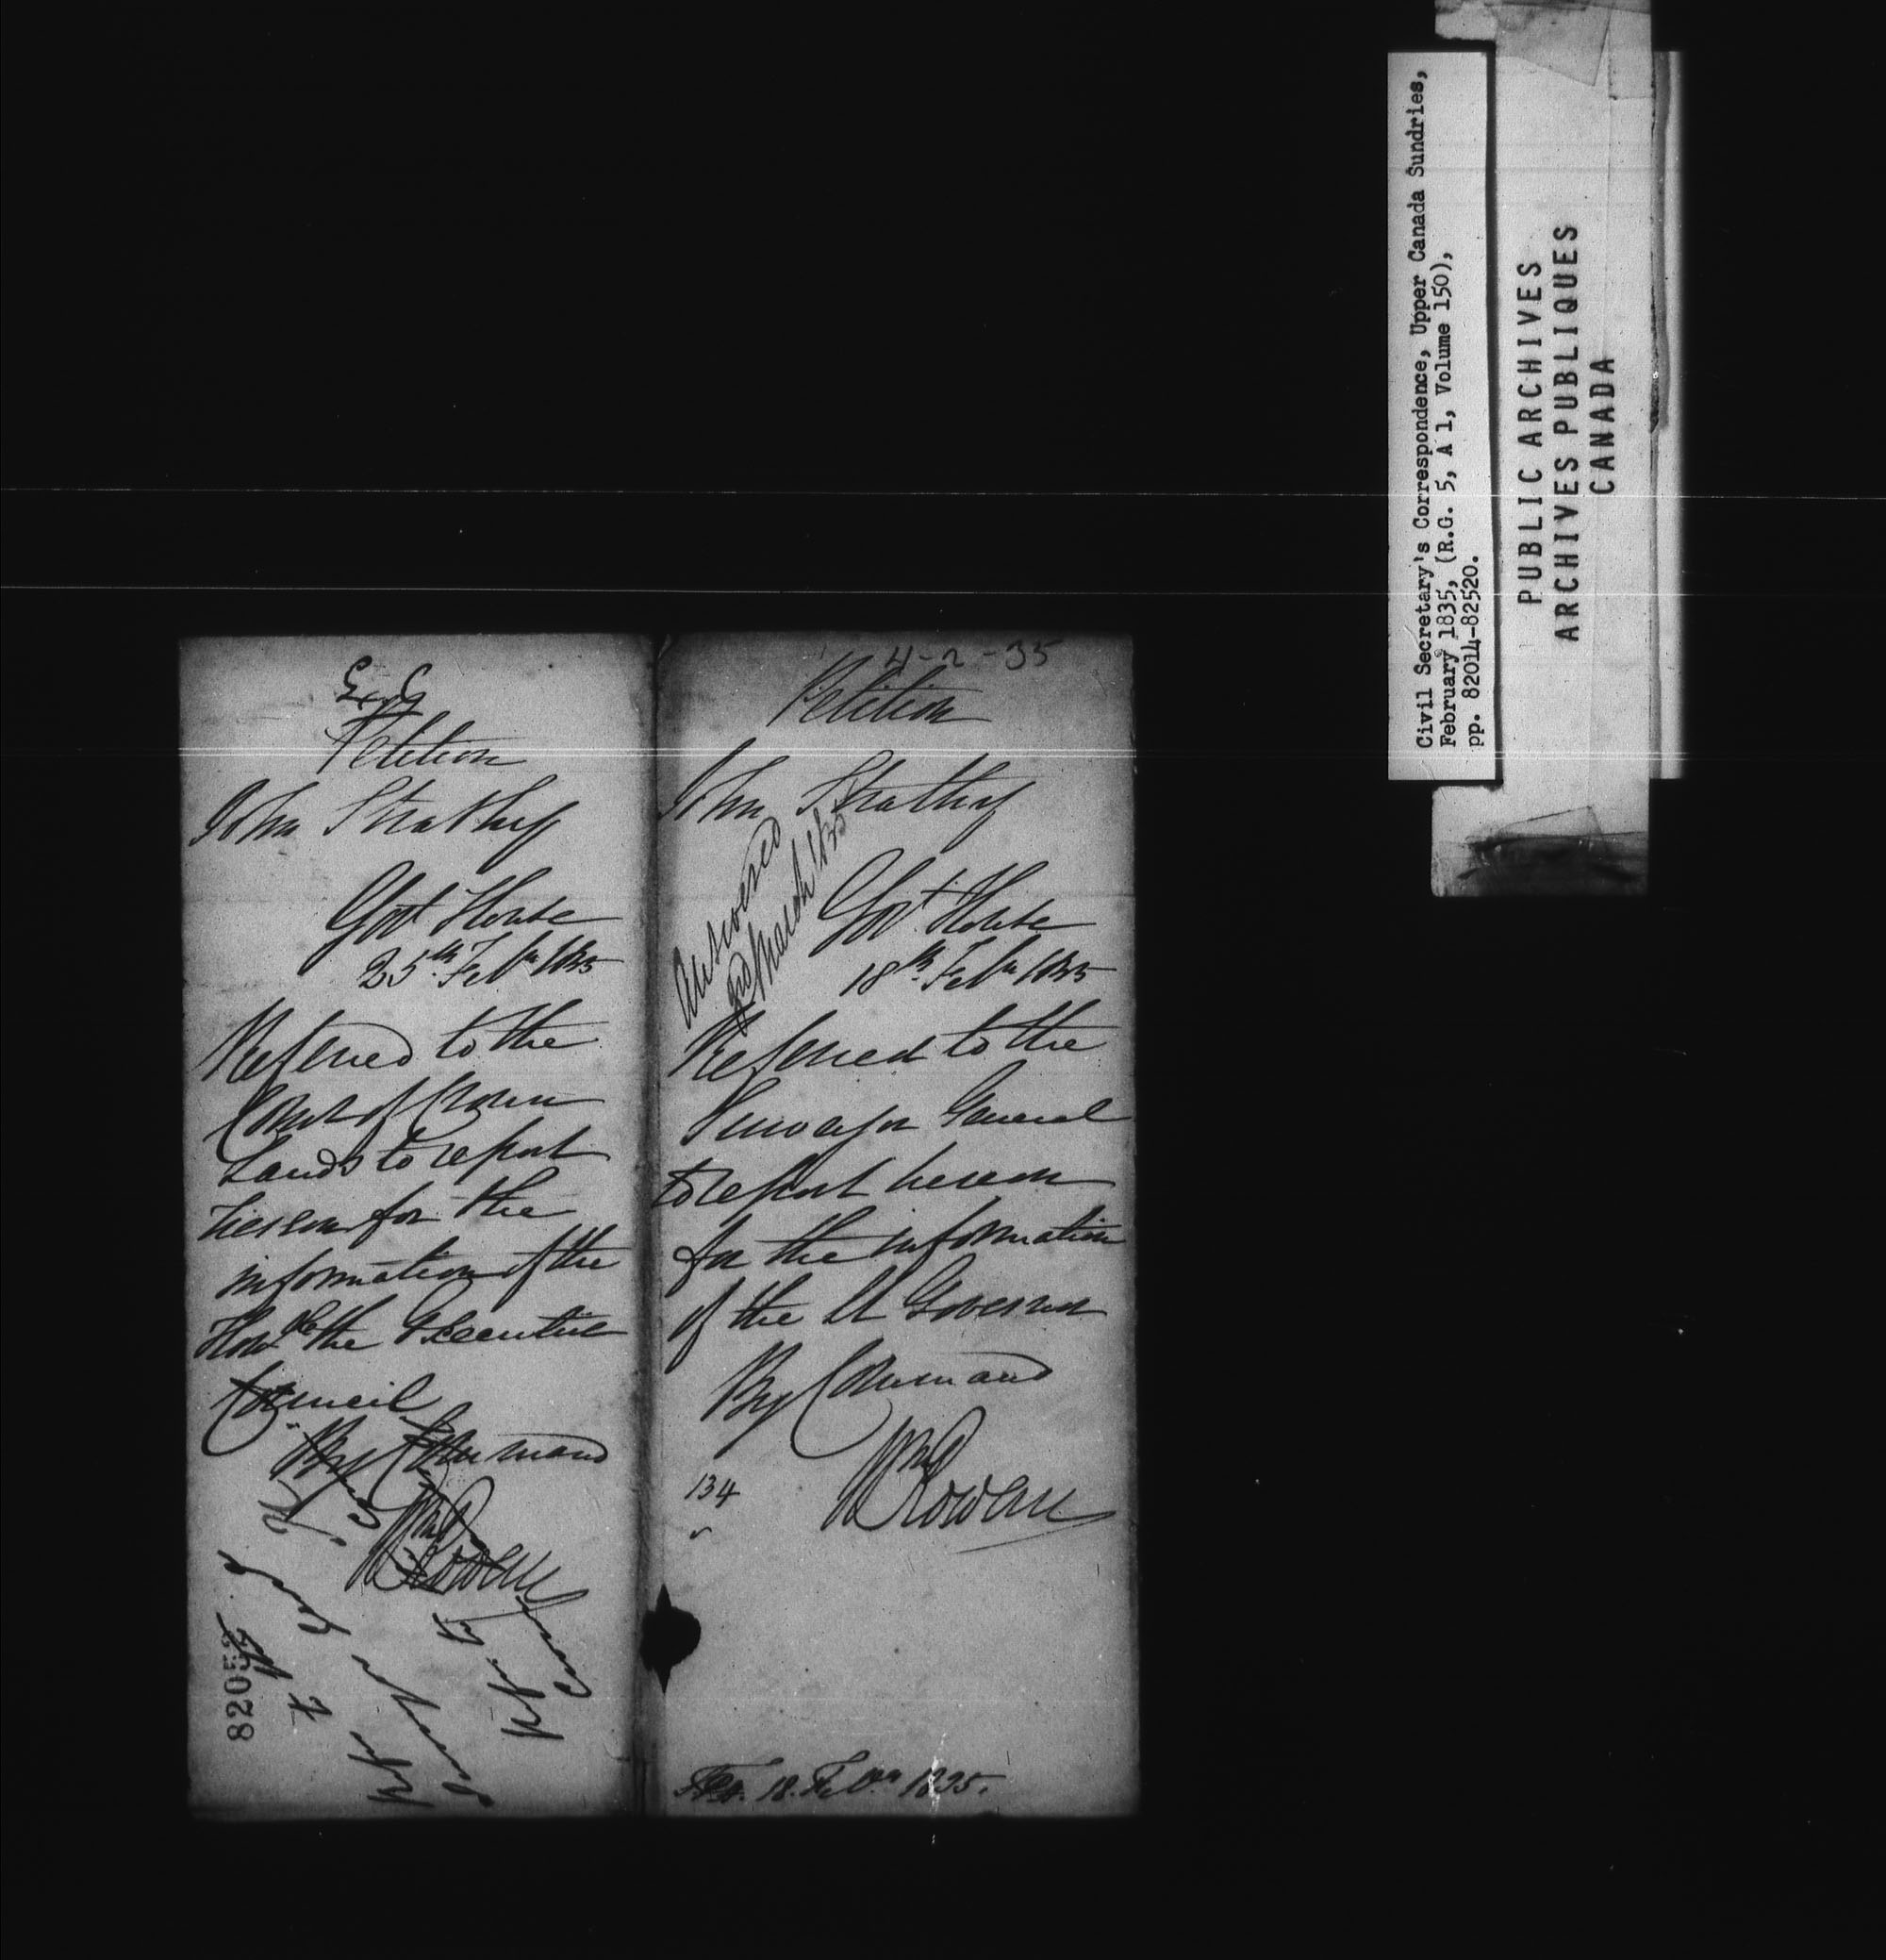 Petition
John Strathy
Govt House
25th Feby 1835
Referred to the
Comr of Crown
Lands to report
hereon for the
information of the
Honble the Executive
Council
By Command
Wm Rowan
82052
4-2-35
Petition
John Strathy
Answered
3rd March 1835
Govt House
18th Feby 1835
Referred to the
Surveyor General
to report hereon
for the information
of the Lt Governor
By Command
Wm Rowan
134
18. Feby 1835.
Civil Secretary's Correspondence, Upper Canada Sundries,
February 1835, (R.G. 5, A 1, Volume 150),
pp. 82014-82520.
PUBLIC ARCHIVES
ARCHIVES PUBLIQUES
CANADA